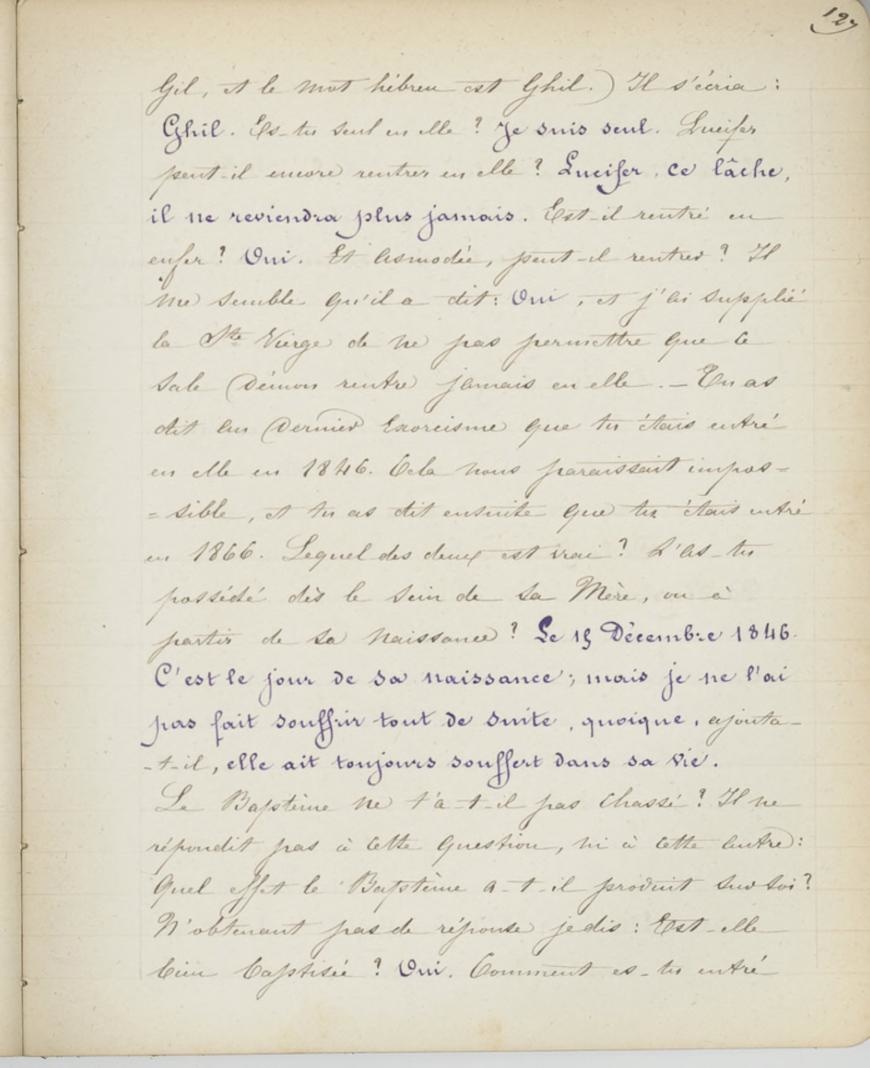 127
Gil, et le mot hébreu est Ghil.) Il s'écria :
Ghil. Es-tu seul en elle ? Je suis seul. Lucifer
peut-il encore rentrer en elle ? Lucifer, ce lâche,
il ne reviendra plus jamais. Est-il rentré en
enfer ? Oui. Et Asmodée, peut-il rentrer ? Il
me semble qu'il a dit : Oui, et j'ai supplié
la Ste Vierge de ne pas permettre que ce
sale Démon rentre jamais en elle. — Tu as
dit au Dernier Exorcisme que tu étais entré
en elle en 1846. Cela nous paraissait impos=
=sible, et tu as dit ensuite que tu étais entré
en 1866. Lequel des deux est vrai ? L'as-tu
possédé dès le sein de sa Mère, ou à
partir de sa naissance ? Le 15 Décembre 1846.
C'est le jour de sa naissance ; mais je ne l'ai
pas fait souffrir tout de suite, quoique, ajouta-
-t-il, elle ait toujours souffert dans sa vie.
Le Baptême ne t'a-t-il pas chassé ? Il ne
répondit pas à cette question, ni à cette autre :
Quel effet le Baptême a-t-il produit sur toi ?
N'obtenant pas de réponse je dis : Est-elle
bien baptisée ? Oui. Comment es-tu entré